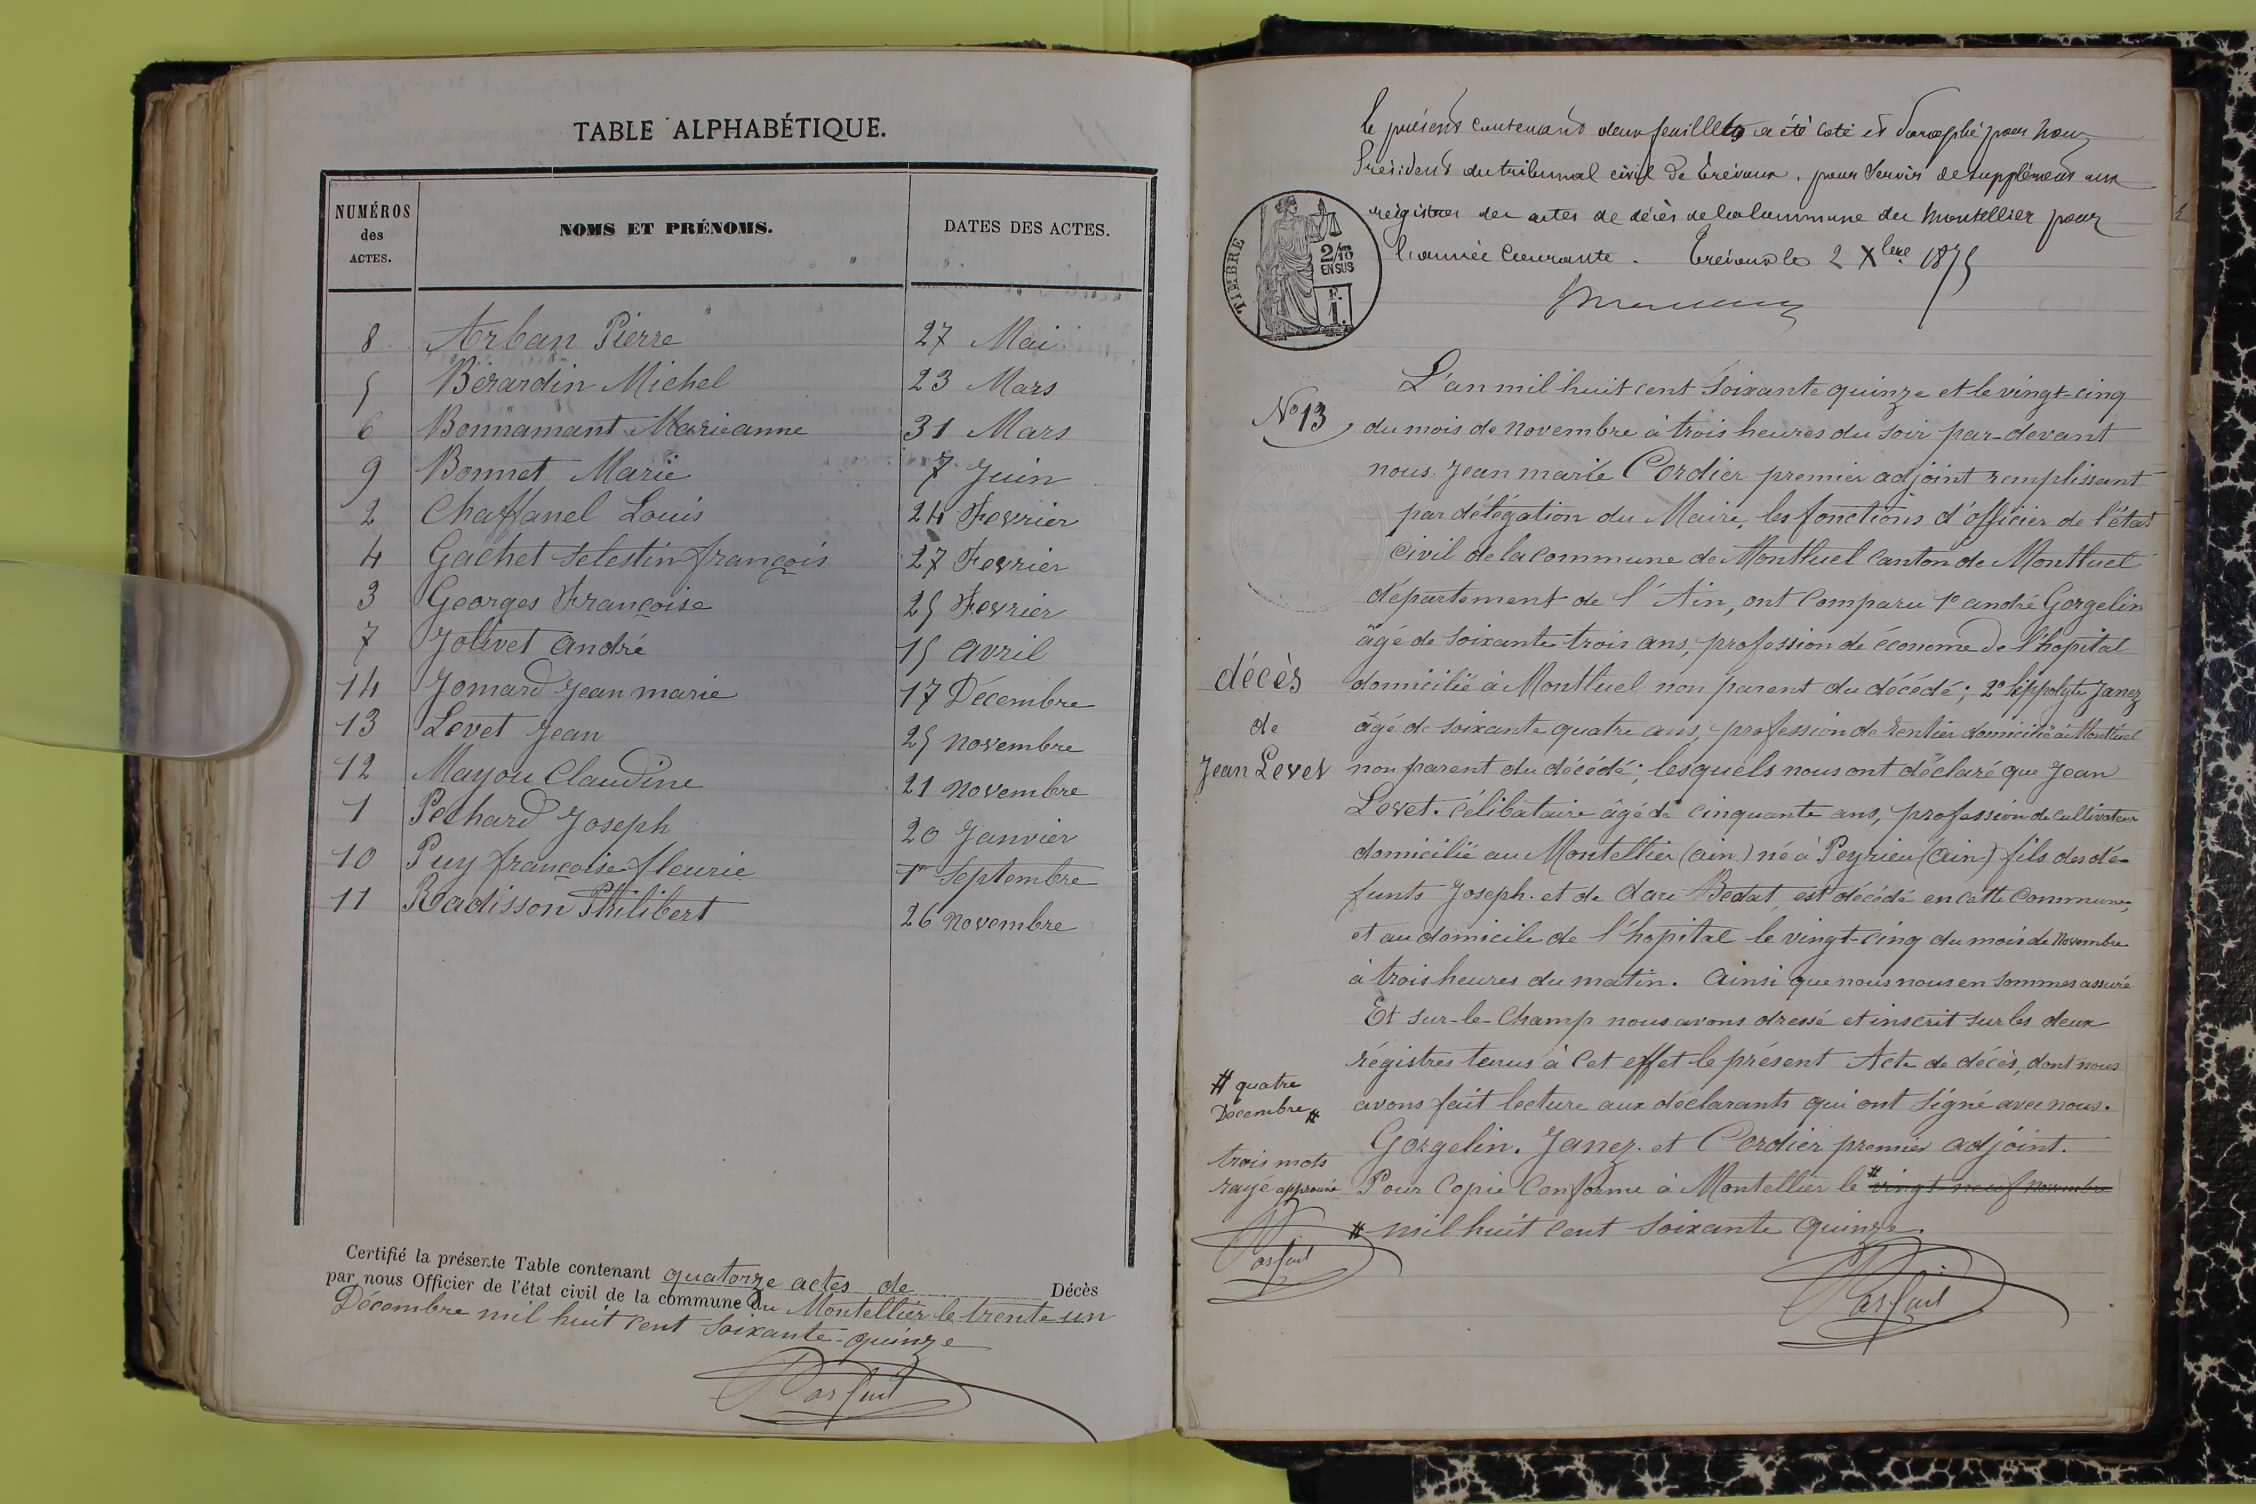 TABLE ALPHABÉTIQUE.
NUMÉROS des ACTES. NOMS ET PRÉNOMS. DATES DES ACTES.
8 Arban Pierre 27 Mai
5 Bérardin Michel 23 Mars
6 Bonnamant Marieanne 31 Mars
9 Bonnet Marie 7 Juin
2 Chaffanel Louis 24 Fevrier
4 Gachet Selestin françois 27 Fevrier
3 Georges Françoise 25 Fevrier
7 Jolivet André 15 Avril
14 Jomard Jean marie 17 Décembre
13 Levet Jean 25 Novembre
12 Mayou Claudine 21 Novembre
1 Pechard Joseph 20 Janvier
10 Puy françoise fleurie 1er Septembre
11 Radisson Philibert 26 Novembre
Certifié la présente Table contenant quatorze actes de Décès
par nous Officier de l'état civil de la commune du Montellier le trente un
Décembre mil huit cent soixante-quinze
Parfait
le présent contenant deux feuillets a été coté et paraphé par nous
Président du tribunal civil de Trévoux, pour servir de supplément aux
registres des actes de décès de la Commune du Montellier pour
l'année Courante. Trévoux le 2 Xbre 1875
TIMBRE
2/10
EN SUS
F.
1.
L'an mil huit cent soixante quinze et le vingt-cinq
No 13
du mois de novembre à trois heures du soir par-devant
nous Jean marie Cordier premier adjoint remplissant
par délégation du Maire, les fonctions d'officier de l'état
Civil de la commune de Montluel Canton de Montluel
département de l'Ain, ont Comparu 1° andré Gorgelin
âgé de soixante trois ans, profession de économe de l'hopital
décès
de
Jean Levet
domicilié à Montluel non parent du décédé; 2° hippolyte Janez
âgé de soixante quatre ans, profession de rentier domicilié à Montluel
non parent du décédé; lesquels nous ont déclaré que Jean
Levet. Célibataire âgé de cinquante ans, profession de cultivateur
domicilié au Montellier (ain) né à Peyrieu (Ain) fils des dé-
funts Joseph. et de Clare Bedat, est décédé en cette Commune,
et au domicile de l'hopital le vingt-cinq du mois de Novembre
à trois heures du matin. Ainsi que nous nous en sommes assuré
Et sur-le-Champ nous avons dressé et inscrit sur les deux
régistres tenus à Cet effet le présent Acte de décès, dont nous
avons fait lecture aux déclarants qui ont signé avec nous.
Gorgelin. Janez. et Cordier premier adjoint.
Pour Copie Conforme à Montellier le # vingt-neuf Novembre
# mil huit cent soixante quinze.
# quatre
Décembre #
trois mots
rayé approuvé
Parfait
Parfait